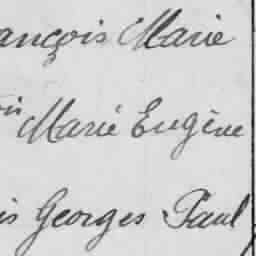 ançois Marie
Marie Eugène
Georges Paul